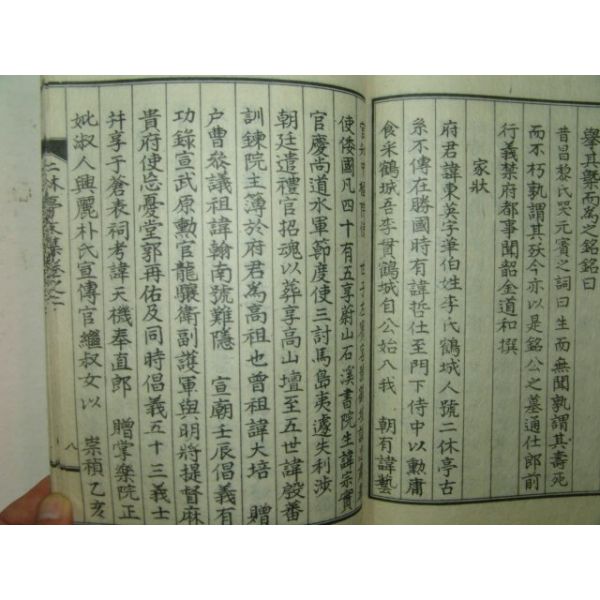 擧其槩而爲之銘銘曰
昔昌黎氏哭元賓之詞曰生而無聞孰謂其壽死
而不朽孰謂其殀今亦以是銘公之墓通仕郎前
行義禁府都事聞韶金道和撰
家狀
府君諱東英字華伯姓李氏鶴城人號二休亭古
系不傳在勝國時有諱哲仕至門下侍中以勳庸
食采鶴城吾李貫鶴城自公始入我 朝有諱藝
使倭國凡四十有五享蔚山石溪書院生諱宗實
官慶尚道水軍節度使三討馬島夷遽失利涉
朝廷遣禮官招魂以葬享高山壇至五世諱㲄蕃
訓鍊院主簿於府君爲高祖也曾祖諱大培 贈
户曹叅議祖諱翰南號難隱 宣朝壬辰倡義有
功錄宣武原勳官龍驤衛副護軍與明將提督麻
貴府使忘憂堂郭再佑及同時倡義五十三義士
并享于蒼表祠考諱天機奉直郎 贈掌樂院正
妣淑人興麗朴氏宣傳官繼叔女以 崇禎乙亥
八